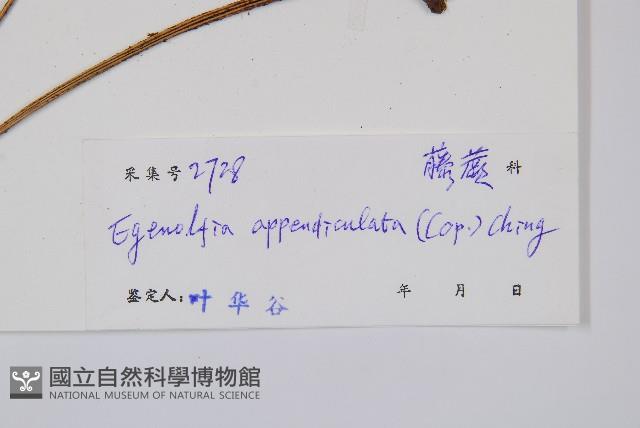 采集号 2728 藤蕨 科
Egenolfia appendiculata (Cop.) Ching
鉴定人: 叶华谷 年 月 日
國立自然科學博物館
NATIONAL MUSEUM OF NATURAL SCIENCE